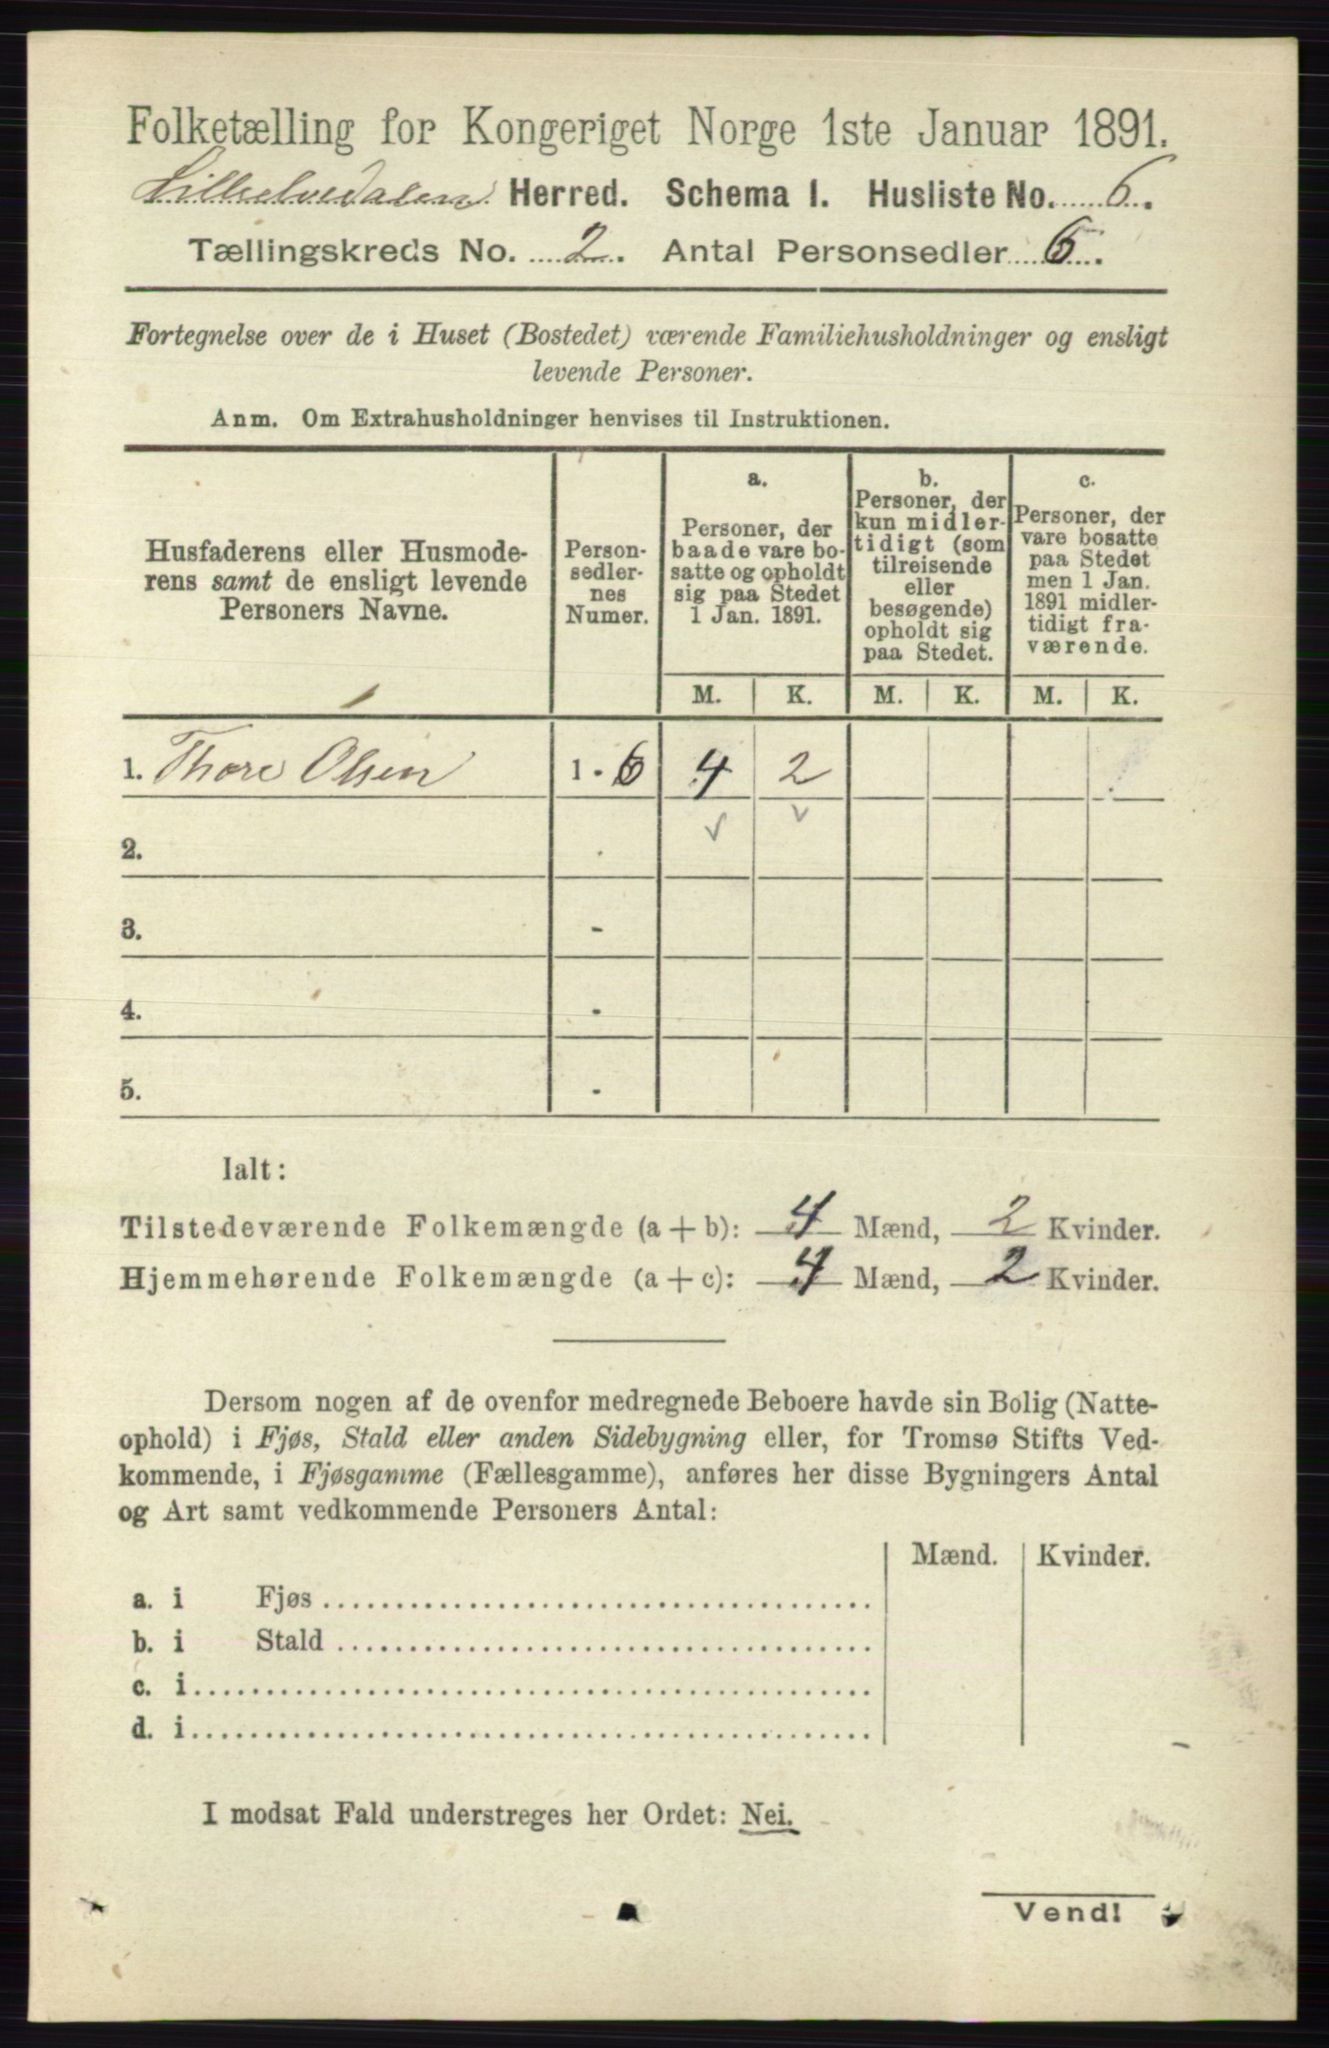 Folketælling for Kongeriget Norge 1ste Januar 1891.
Lilleelvedalen Herred. Schema I. Husliste No. 6.
Tællingskreds No. 2. Antal Personsedler 6.
Fortegnelse over de i Huset (Bostedet) værende Familiehusholdninger og ensligt
levende Personer.
Anm. Om Extrahusholdninger henvises til Instruktionen.
Husfaderens eller Husmode-
rens samt de ensligt levende
Personers Navne.
Person-
sedler-
nes
Numer.
a.
Personer, der
baade vare bo-
satte og opholdt
sig paa Stedet
1 Jan. 1891.
b.
Personer, der
kun midler-
tidigt (som
tilreisende
eller
besøgende)
opholdt sig
paa Stedet.
c.
Personer, der
vare bosatte
paa Stedet
men 1 Jan.
1891 midler-
tidigt fra-
værende.
M. K. M. K. M. K.
1. Thore Olsen 1 - 6 4 2
2.
3. -
4. -
5. -
Ialt:
Tilstedeværende Folkemængde (a + b): 4 Mænd, 2 Kvinder.
Hjemmehørende Folkemængde (a + c): 4 Mænd, 2 Kvinder.
Dersom nogen af de ovenfor medregnede Beboere havde sin Bolig (Natte-
ophold) i Fjøs, Stald eller anden Sidebygning eller, for Tromsø Stifts Ved-
kommende, i Fjøsgamme (Fællesgamme), anføres her disse Bygningers Antal
og Art samt vedkommende Personers Antal:
Mænd. Kvinder.
a. i Fjøs
b. i Stald
c. i
d. i
I modsat Fald understreges her Ordet: Nei.
Vend!